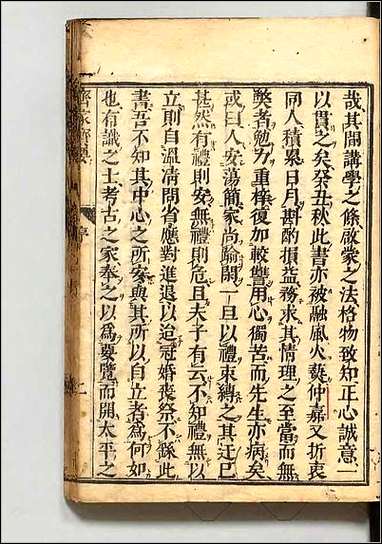 哉其開講學之條啟蒙之法格物致知正心誠意一
以貫之矣癸丑秋此書亦被融風火㷊仲嘉又折衷
同人積累日月斟酌損益務求其情理之至當而無
獘者勉力重梓復加較讐用心獨苦而先生亦病矣
或曰人安蕩簡家尚踰閑一旦以禮束縛之其迂已
甚然有禮則安無禮則危且夫子有云不知禮無以
立則自溫凊問省應對進退以迨冠婚喪祭不繇此
書吾不知其中心之所安與其所以自立者爲何如
也有識之士考古之家奉之以爲要覽而開太平之
齊家寶要
序
二